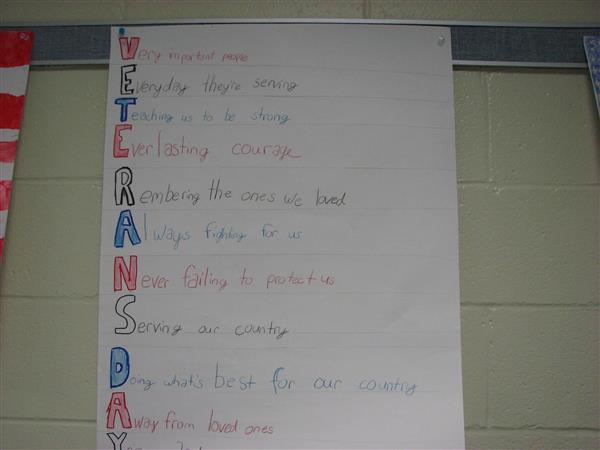 Very important people
Everyday they're serving
Teaching us to be strong
Everlasting courage
Rembering the ones we loved
Always fighting for us
Never failing to protect us
Serving our country
Doing what's best for our country
Away from loved ones
Y